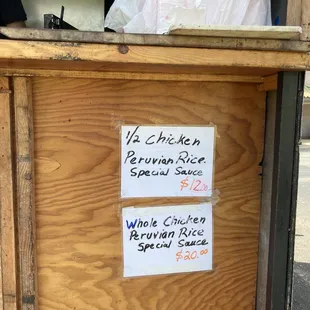 1/2 Chicken
Peruvian Rice.
Special Sauce
$12.00
Whole Chicken
Peruvian Rice
Special Sauce
$20.00